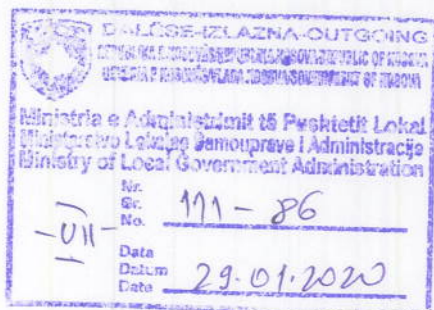 DALËSE-IZLAZNA-OUTGOING
REPUBLIC OF KOSOVA
GOVERNMENT OF KOSOVA
Ministria e Administrimit të Pushtetit Lokal
Ministarstvo Lokalne Samouprave i Administracije
Ministry of Local Government Administration
Nr.
Br.
No. 111-86
-VII-
Data
Datum
Date 29.01.2020